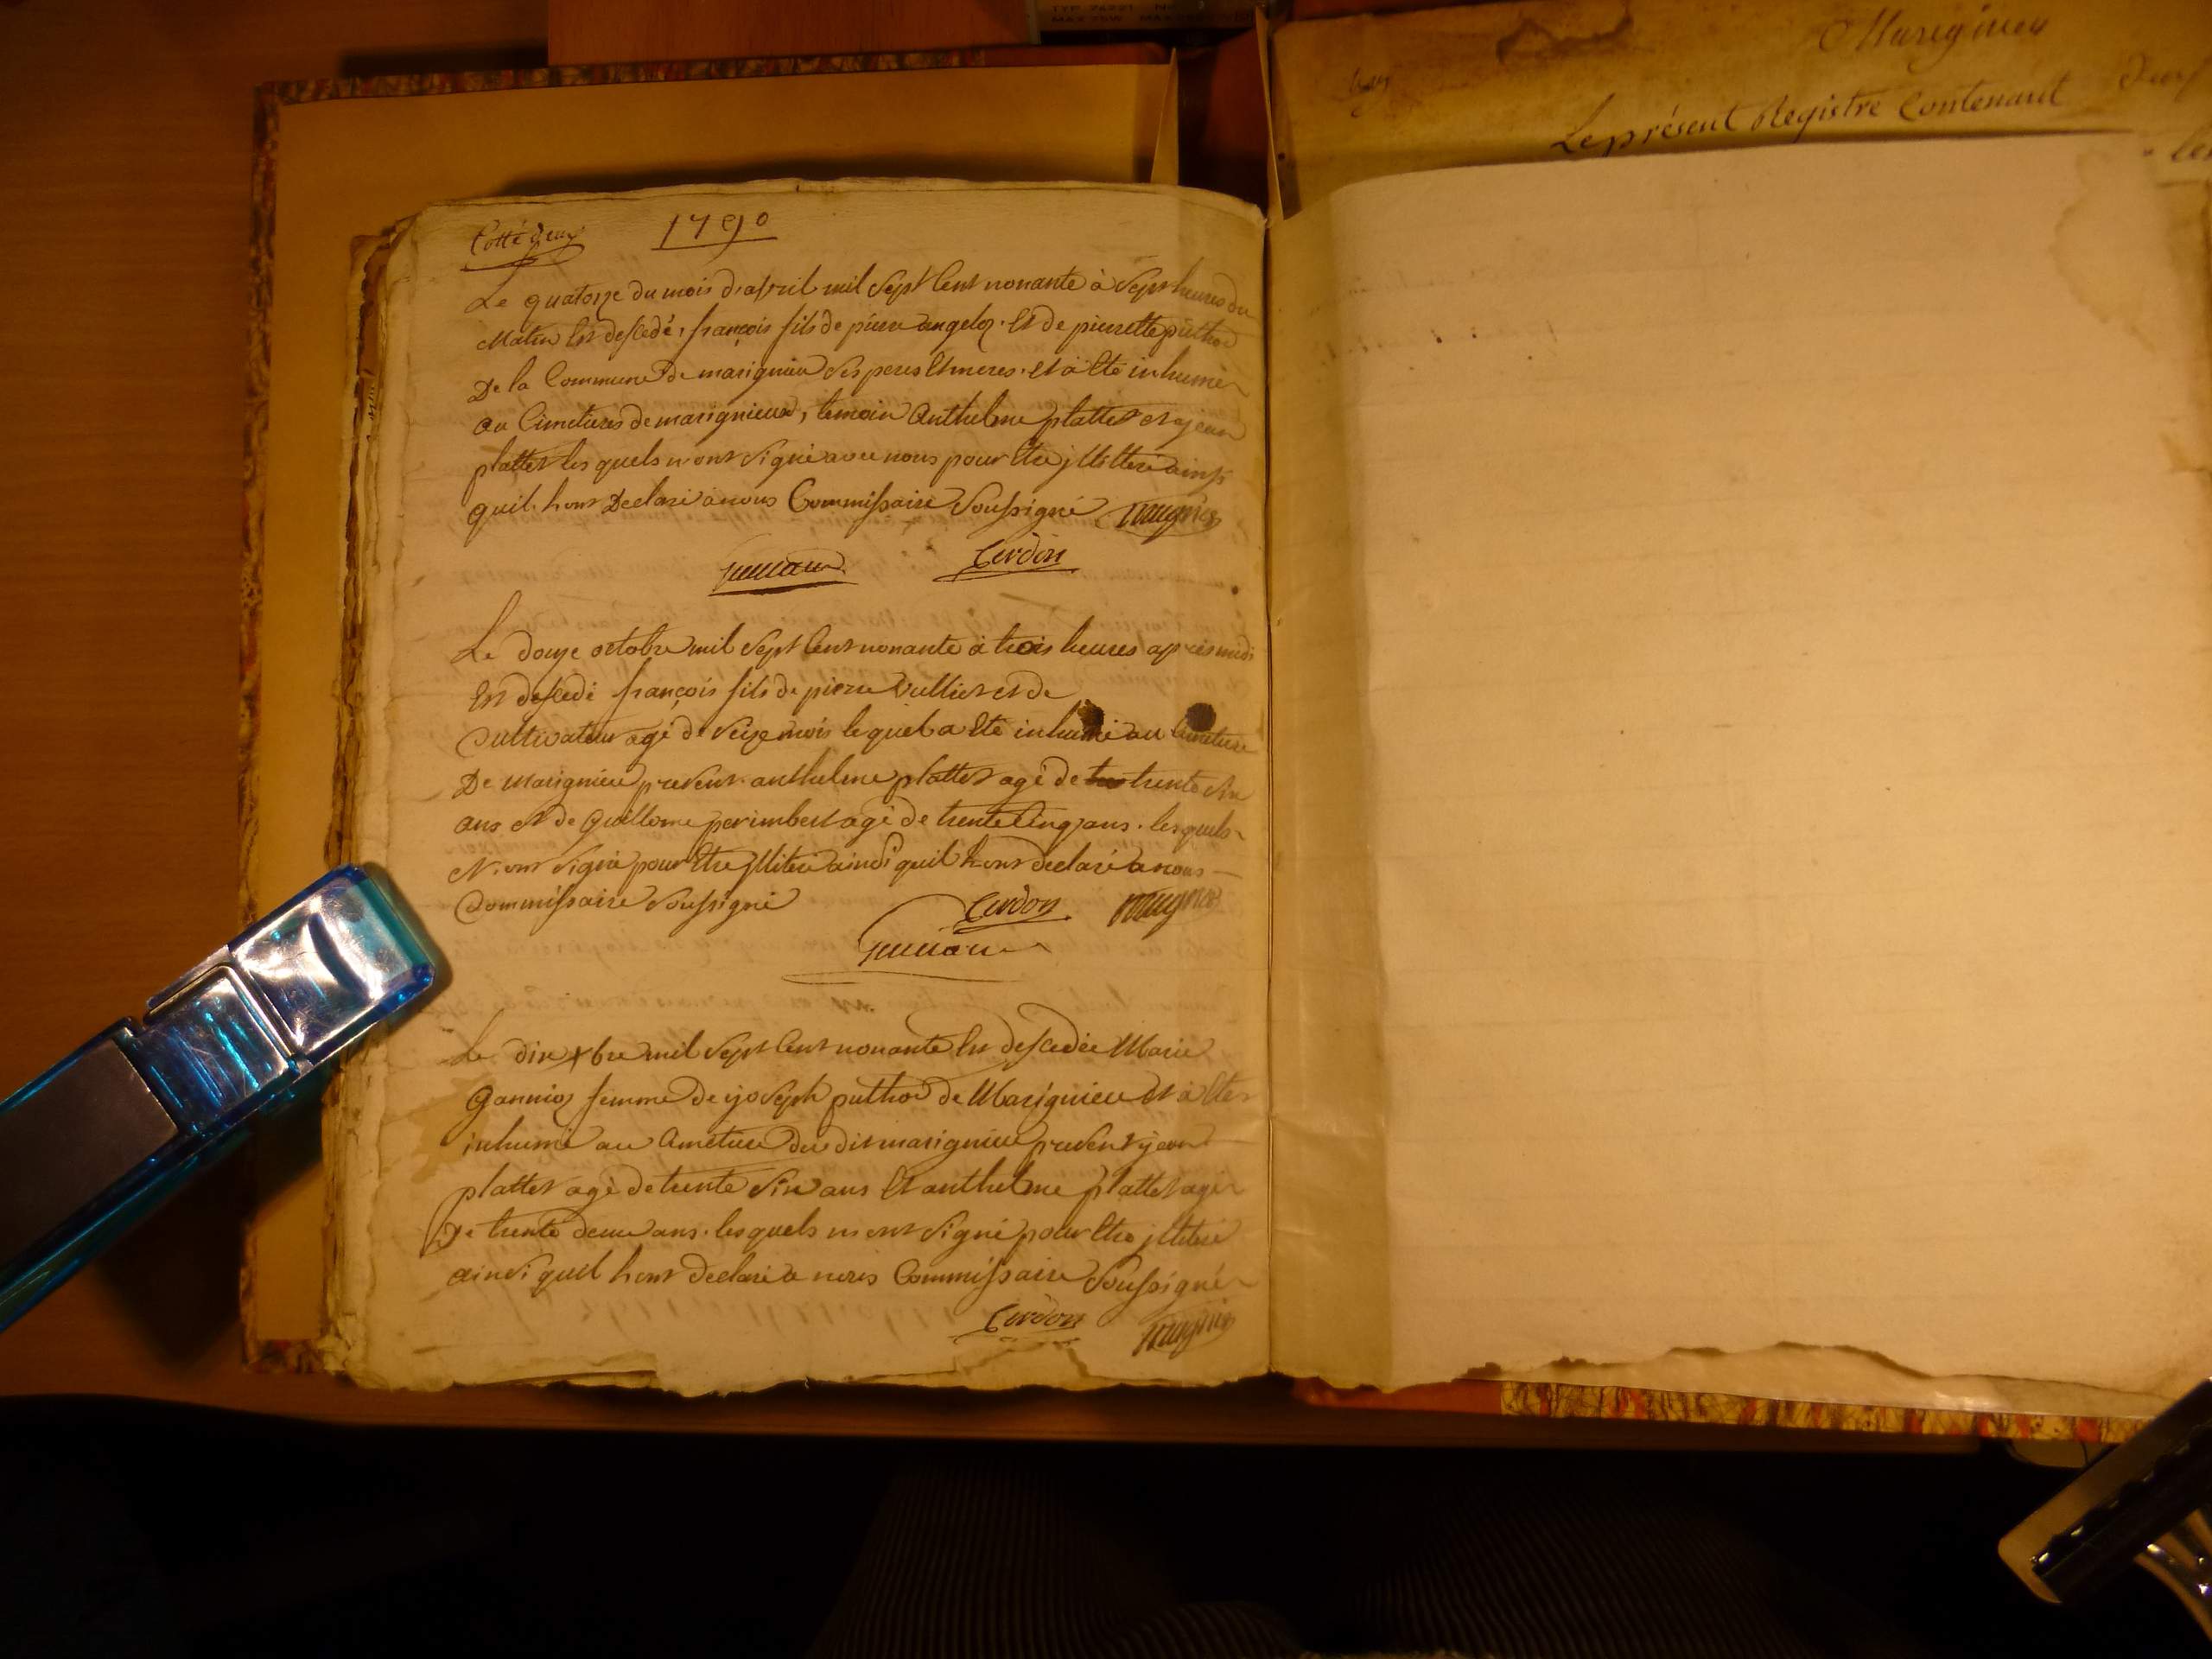 Cotté deux 1790
Le quatorze du mois d'apvril mil sept Cent nonante à Sept heures du
Matin Est desfedé, françois fils de pierre angeloz. Et de pierrette puthod
De la Commune de marignieu Ses peres Et meres. Et à Eté inhumé
au Cimetieres de marignieux, temoin Anthelme plattet et jean
plattet les quels n ont Signé avec nous pour Etre jllittere ainsi
quil. hont Declaré a nous Commissaire Soussigné
Cerdon
Le douze octobre mil Sept Cent nonante à trois heures apres midi
Est desfedé françois fils de pierre Vulliet et de
Cultivateur agé de Seize mois lequel a Eté inhumé au Cimetiere
De Marignieu present. anthelme plattet agé de trente Six
ans et de Guillome perimbert agé de trente Cinq ans. lesquels
N. ont Signé pour Etre jlliteré ainsi quil hont declaré a nous
Commissaire Soussigné
Cerdon
Le dix xbre mil Sept Cent nonante Est desfedée Marie
Gannioz femme de joseph puthod de Marignieu Et à Eté
inhumé au Cimetiere du dit marignieu present jean
plattet agé de trente Six ans Et anthelme plattet agé
de trente deux ans. lesquels n ont Signé pour Etre jlliteré
ainsi quil hont Declaré a nous Commissaire Soussigné
Cerdon
Marignieu
Le présent Registre Contenant
les